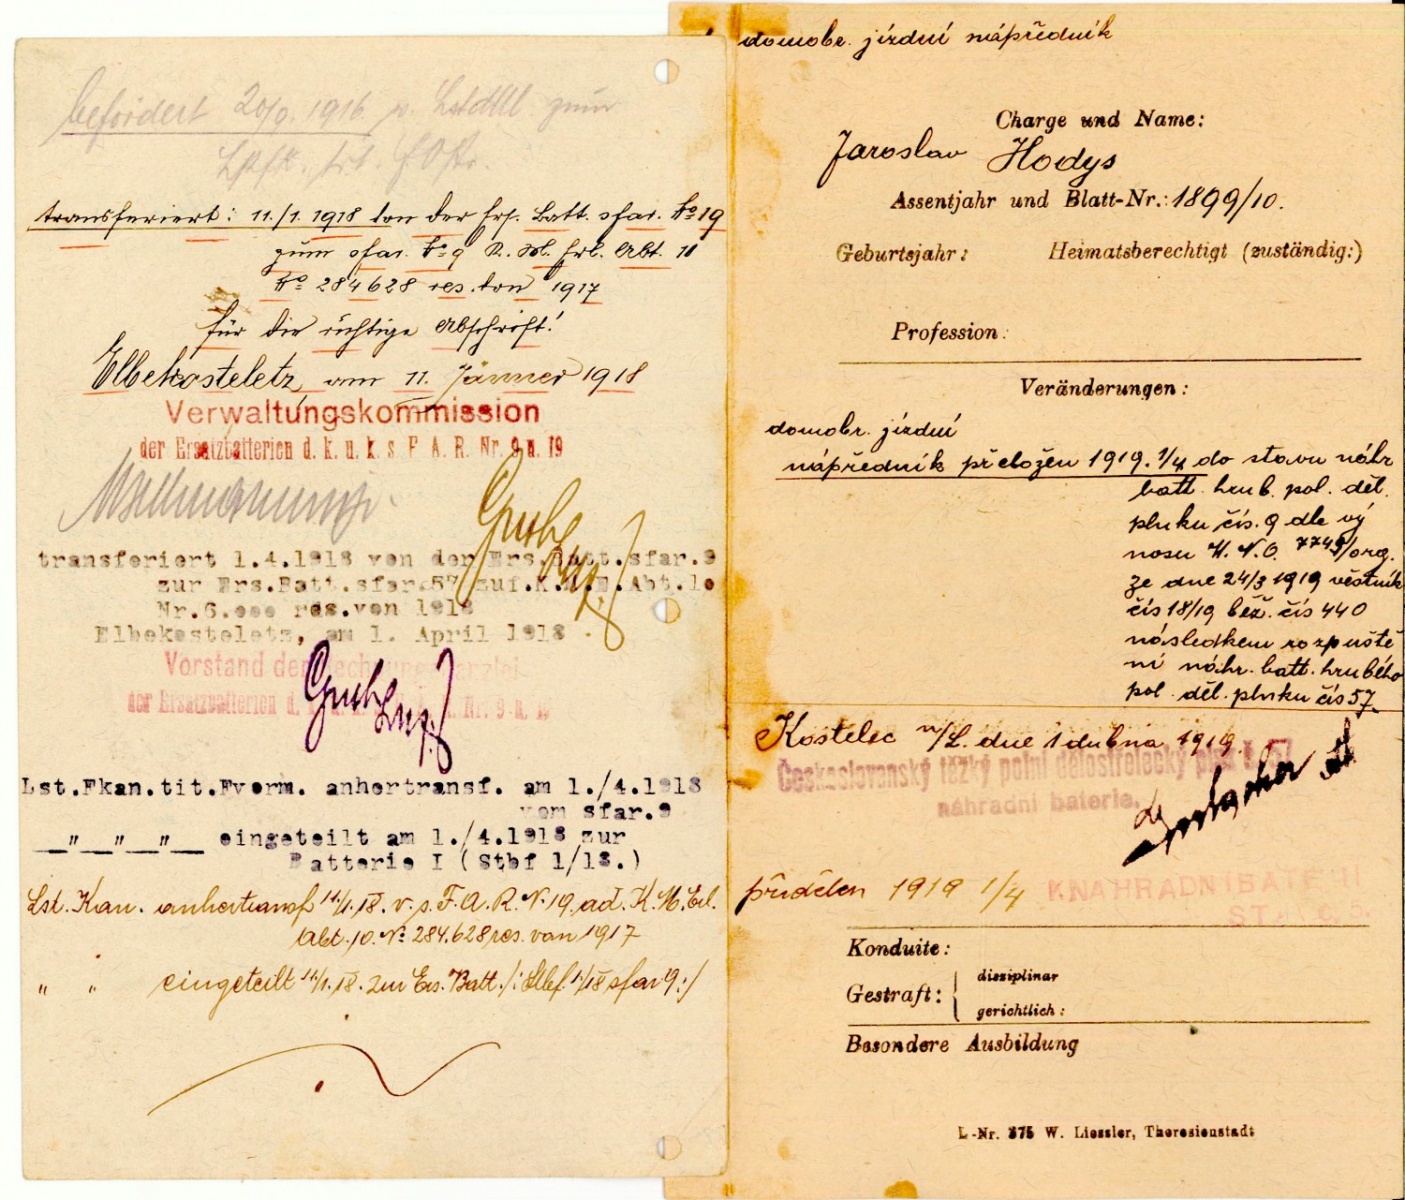 befördert 20/9. 1916 v. LstdM zum
transferiert: 11./1. 1918 von der Ers. Batt. sfar. No 19
zum sfar. No 9 K. M. Erl. Abt. 10
No 284628 res. von 1917
für die richtige Abschrift!
Elbekosteletz, am 11. Jänner 1918
Verwaltungskommission
der Ersatzbatterien d. k. u. k. s F A. R. Nr. 9 u. 19
transferiert 1.4.1918 von der Ers.Batt.sfar.9
zur Ers.Batt.sfar.57 zuf.K.M.E.Abt.10
Nr.6.000 res.von 1918
Elbekosteletz, am 1. April 1918
Vorstand der Rechnungskanzlei
der Ersatzbatterien d. Nr. 9 u. 19
Lst.Fkan.tit.Fvorm. anhertransf. am 1./4.1918
vom sfar.9
__"__"__"__ eingeteilt am 1./4.1918 zur
Batterie I (Stbf 1/18.)
Lst. Kan. anhertransf 11./1.18. v. s. F. A. R. N. 19. ad. K. M. Erl.
Abt. 10. No 284.628 res. von 1917
" " eingeteilt 11/1.18. zur Ers. Batt. /: Stbf. 1/18 sfar 9 :/
domobr. jízdní nápředník
Charge und Name:
Jaroslav Hodys
Assentjahr und Blatt-Nr.: 1899/10.
Geburtsjahr: Heimatsberechtigt (zuständig:)
Profession:
Veränderungen:
domobr. jízdní
nápředník přeložen 1919. 1/4 do stavu náhr
batt. hrub. pol. děl.
pluku čís. 9 dle vý
nosu M. N. O. 7749/org.
ze dne 24/3 1919 věstník
čís 18/19 běž. čís 440
následkem rozpuště
ní náhr. batt. hrubého
pol. děl. pluku čís 57.
Kostelec n/L. dne 1 dubna 1919.
Československý těžký polní dělostřelecký pluk č. 57
náhradní baterie.
přidělen 1919 1/4 K NÁHRADNÍ BATERII
Konduite:
Gestraft: disziplinar
gerichtlich:
Besondere Ausbildung
L-Nr. 375 W. Liessler, Theresienstadt